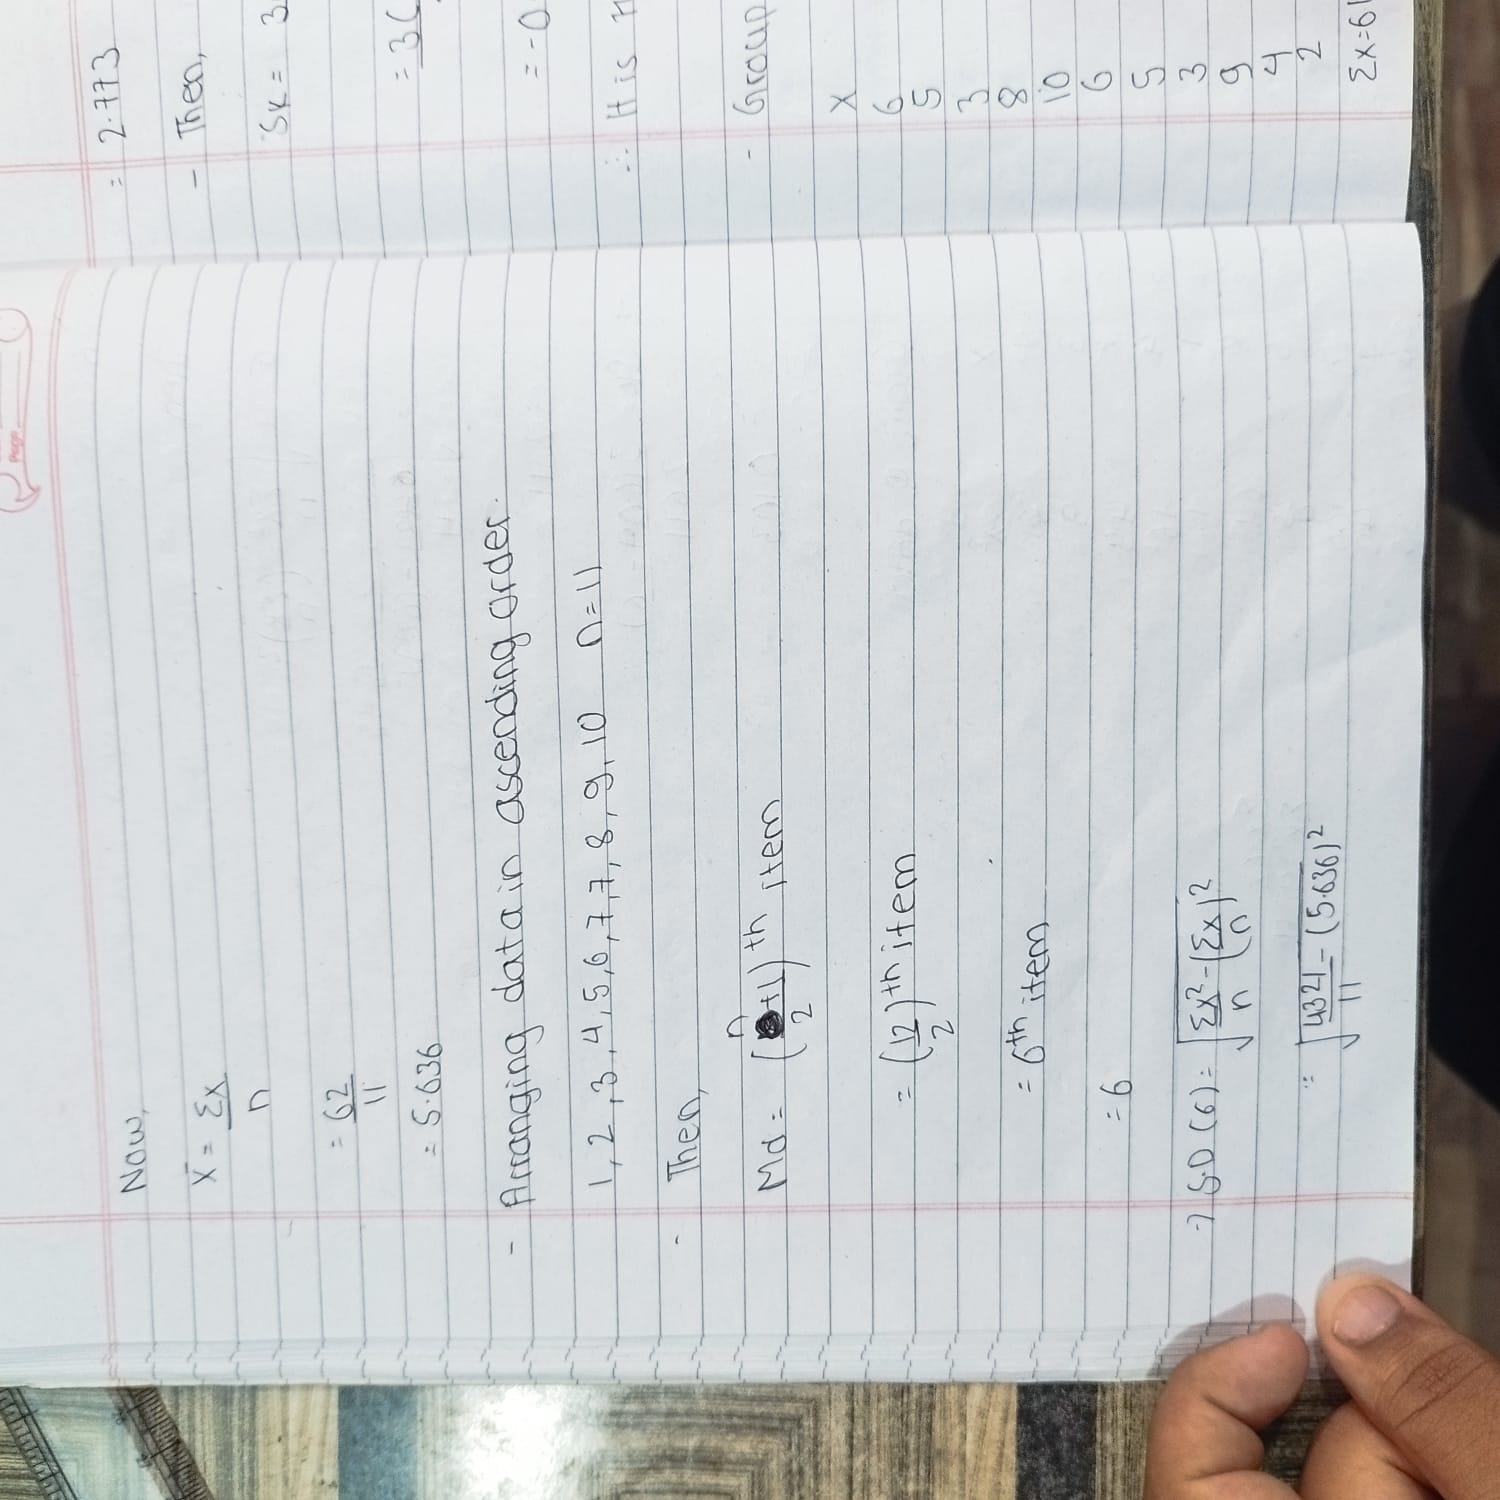 Page
Now,
x̄ = Σx
n
= 62
11
= 5.636
- Arranging data in ascending order.
1, 2, 3, 4, 5, 6, 7, 7, 8, 9, 10 n=11
- Then,
Md = (n+1)th item
2
= (12)th item
2
= 6th item
= 6
→ S.D (6) = √Σx² - (Σx)²
n n
= √4321 - (5.636)²
11
= 2.773
- Then,
Sk = 3
= 3(
= -0
∴ It is
- Group
x
6
5
3
8
10
6
5
3
9
4
2
Σx=61